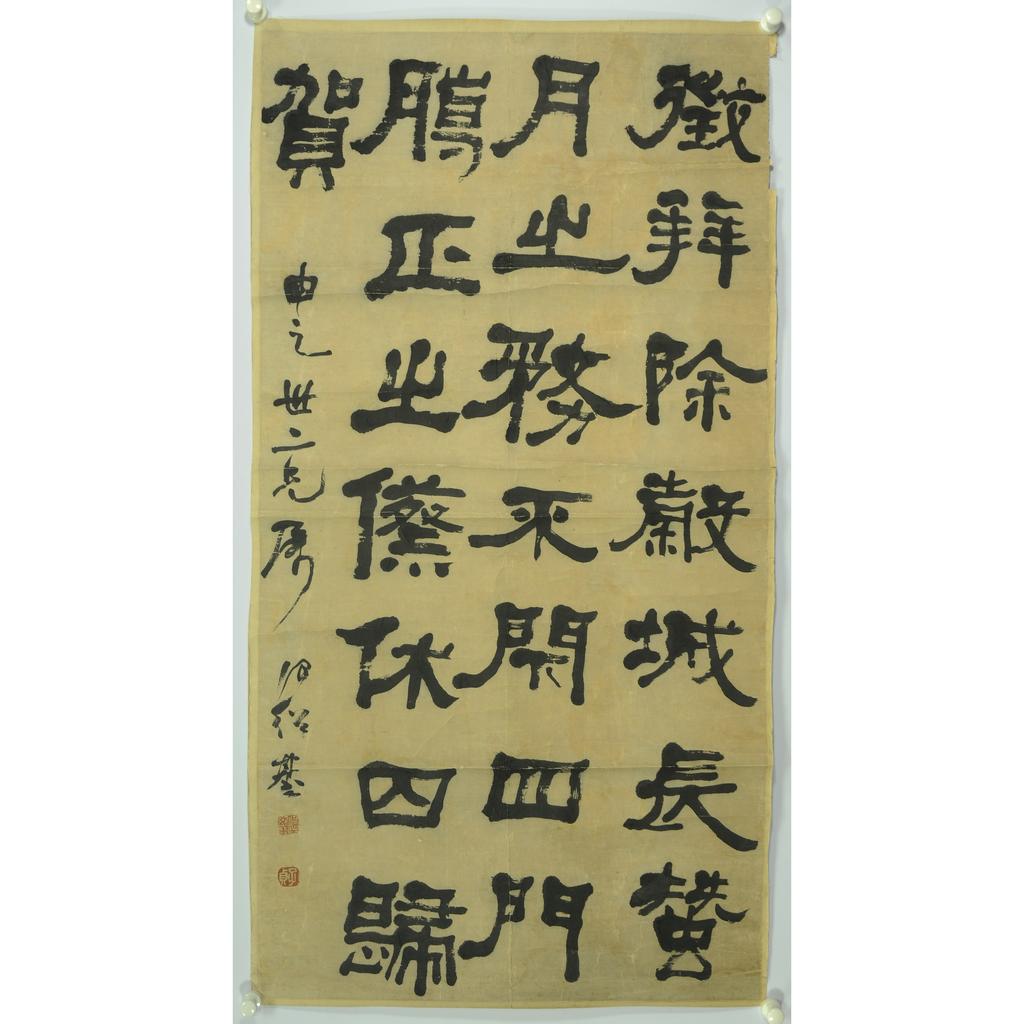 徵拜除穀城長蠶
月之務不閉四門
臘正之祭休囚歸
賀
申之世二兄屬
何紹基